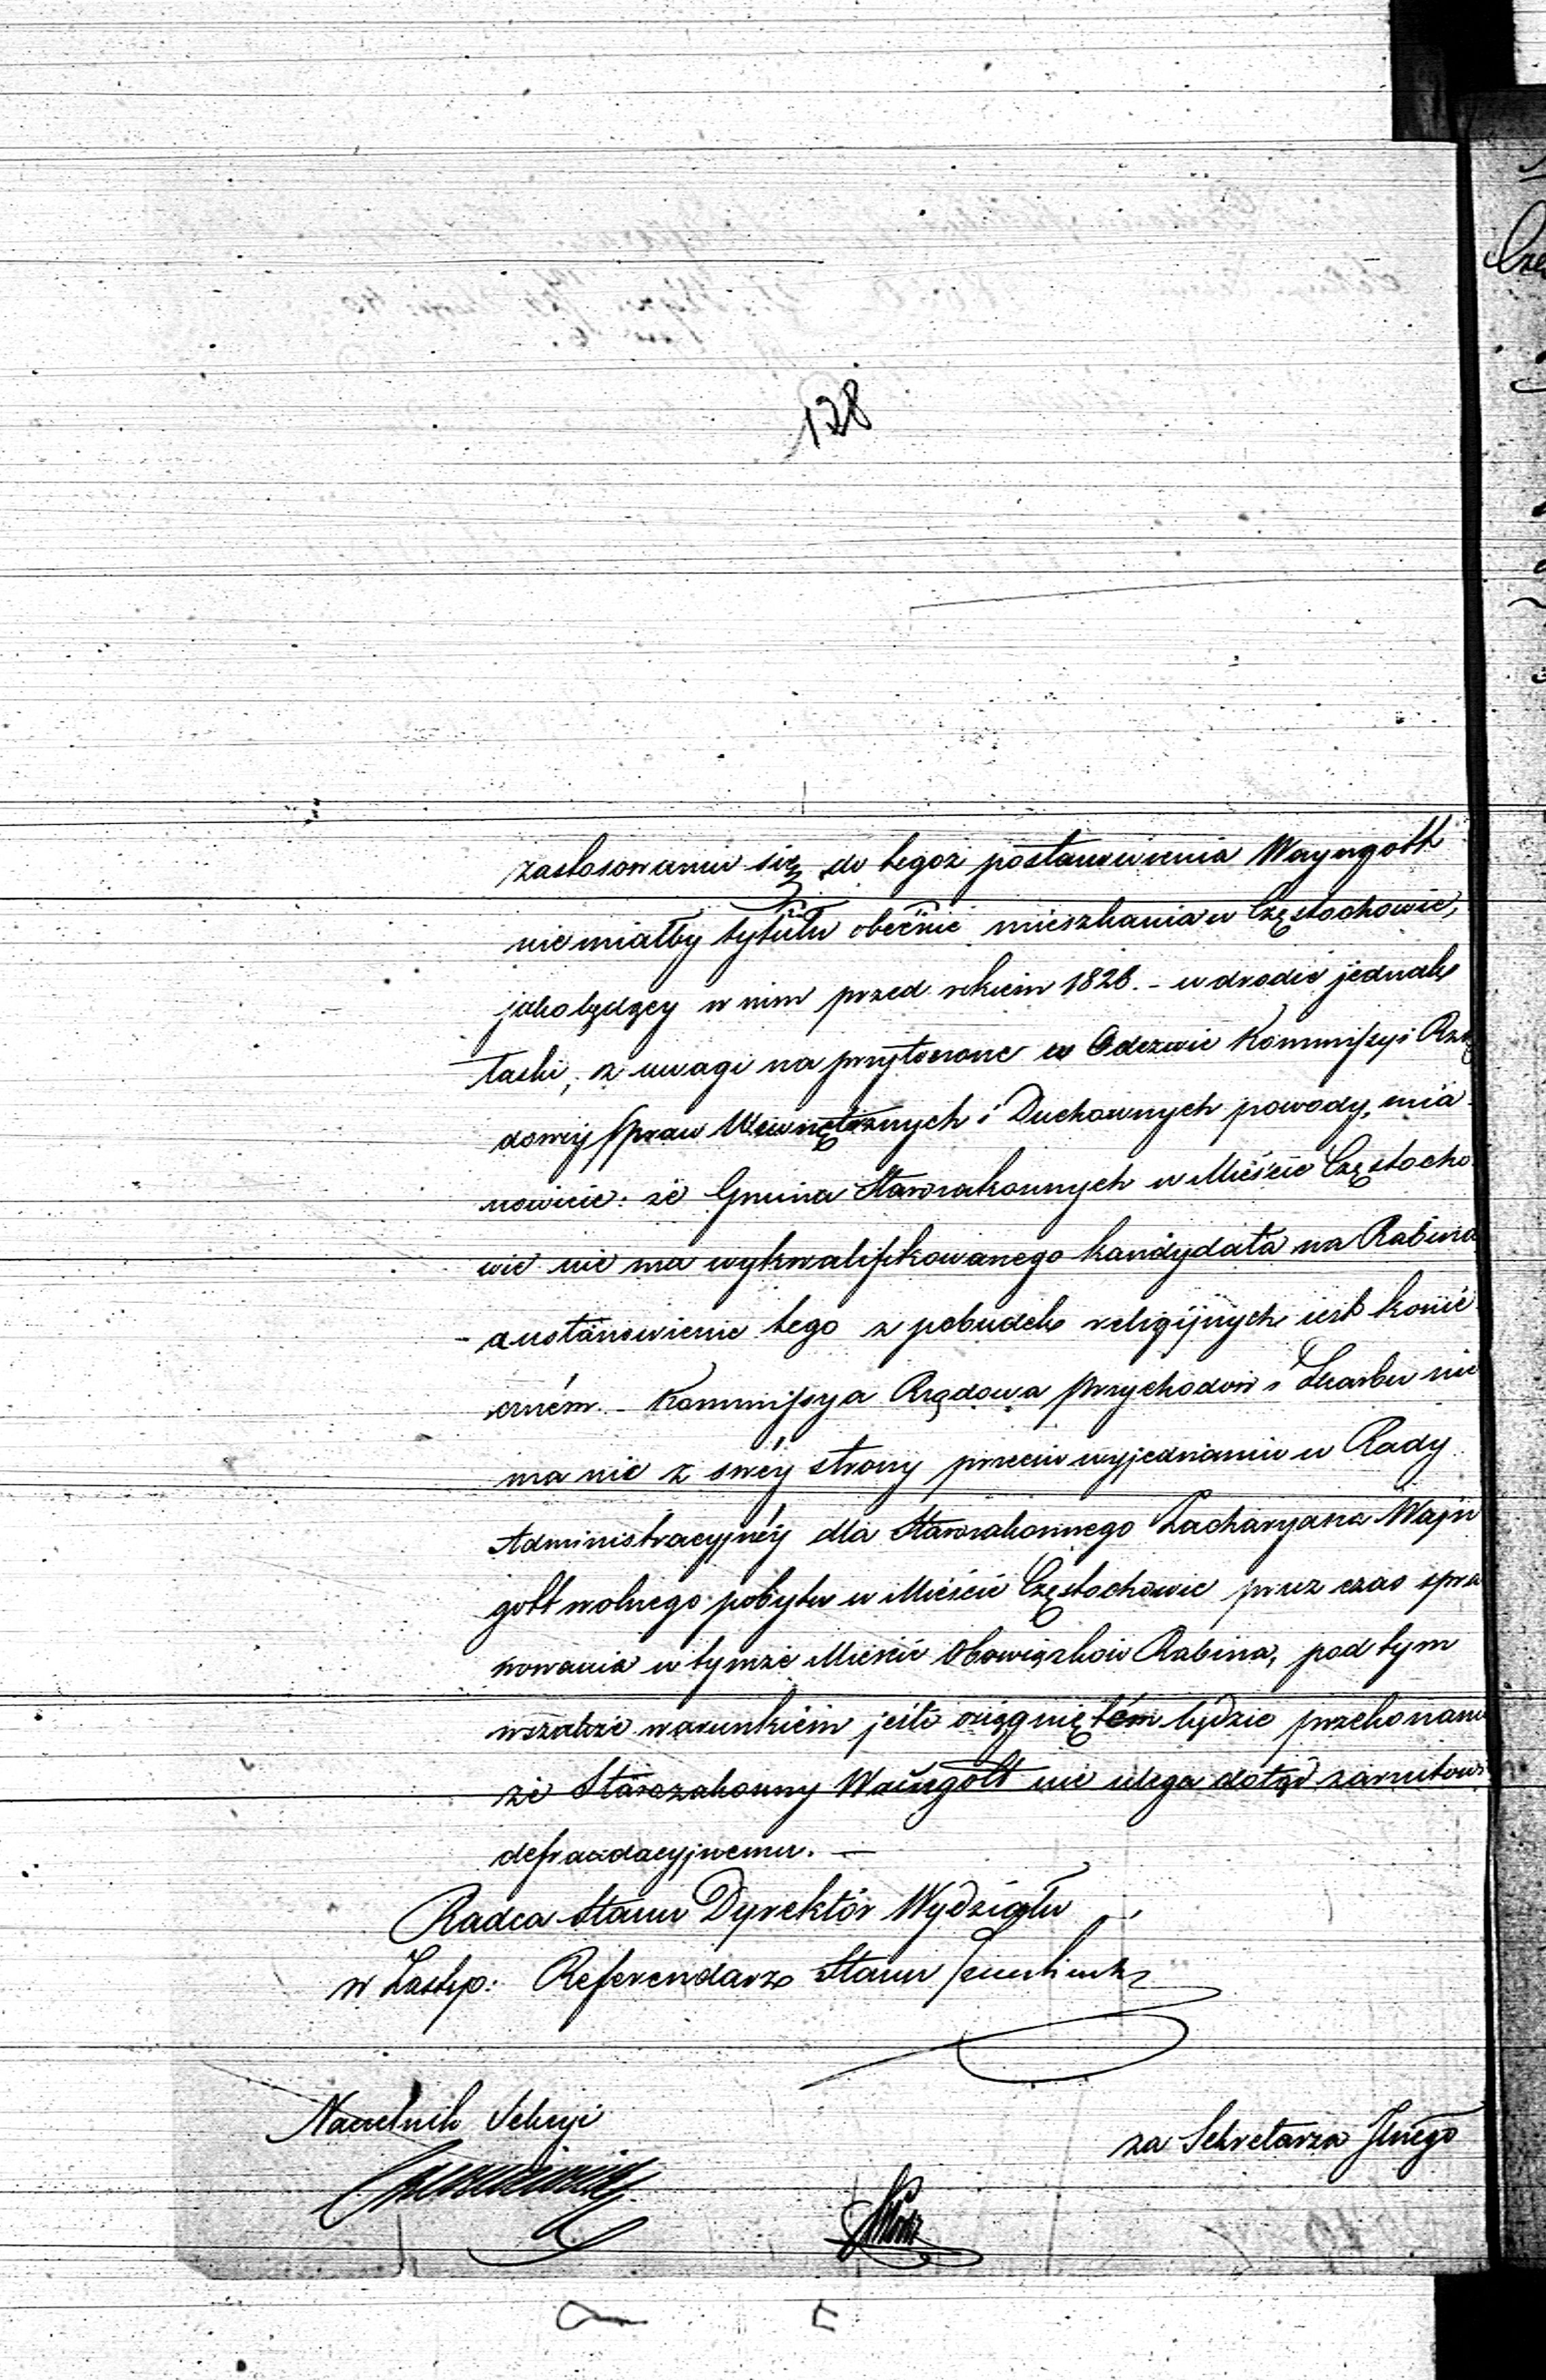 128
zastosowaniu się do tegoż postanowienia Wayngott
nie miałby tytułu obecnie mieszkania w Częstochowie,
jako będący w nim przed rokiem 1826. – w drodze jednak
łaski, z uwagi na przytoczone w Odezwie Kommissyi Rzą
dowéy Spraw Wewnętrznych i Duchownych powody, mia
nowicie: że Gmina Starozakonnych w Mieście Częstocho
wie nie ma wykwalifikowanego kandydata na Rabina
a ustanowienie tego z pobudek religijnych jest konie
czném. – Kommissya Rządowa Przychodów i Skarbu nie
ma nic z swéy strony przeciw wyjednaniu u Rady
Administracyjnéy dla Starozakonnego Zacharyasza Wajn
gott wolnego pobytu w Mieście Częstochowie przez czas spra
wowania w tymże Mieście Obowiązków Rabina, pod tym
wszakże warunkiem jeśli osiągniętém będzie przekonanie
że Starozakonny Waingott nie ulega dotąd zarzutowi
defraudacyjnemu. —
Radca Stanu Dyrektór Wydziału
w Zastęp: Referendarz Stanu
Naczelnik Sekcyi
za Sekretarza Jlnego